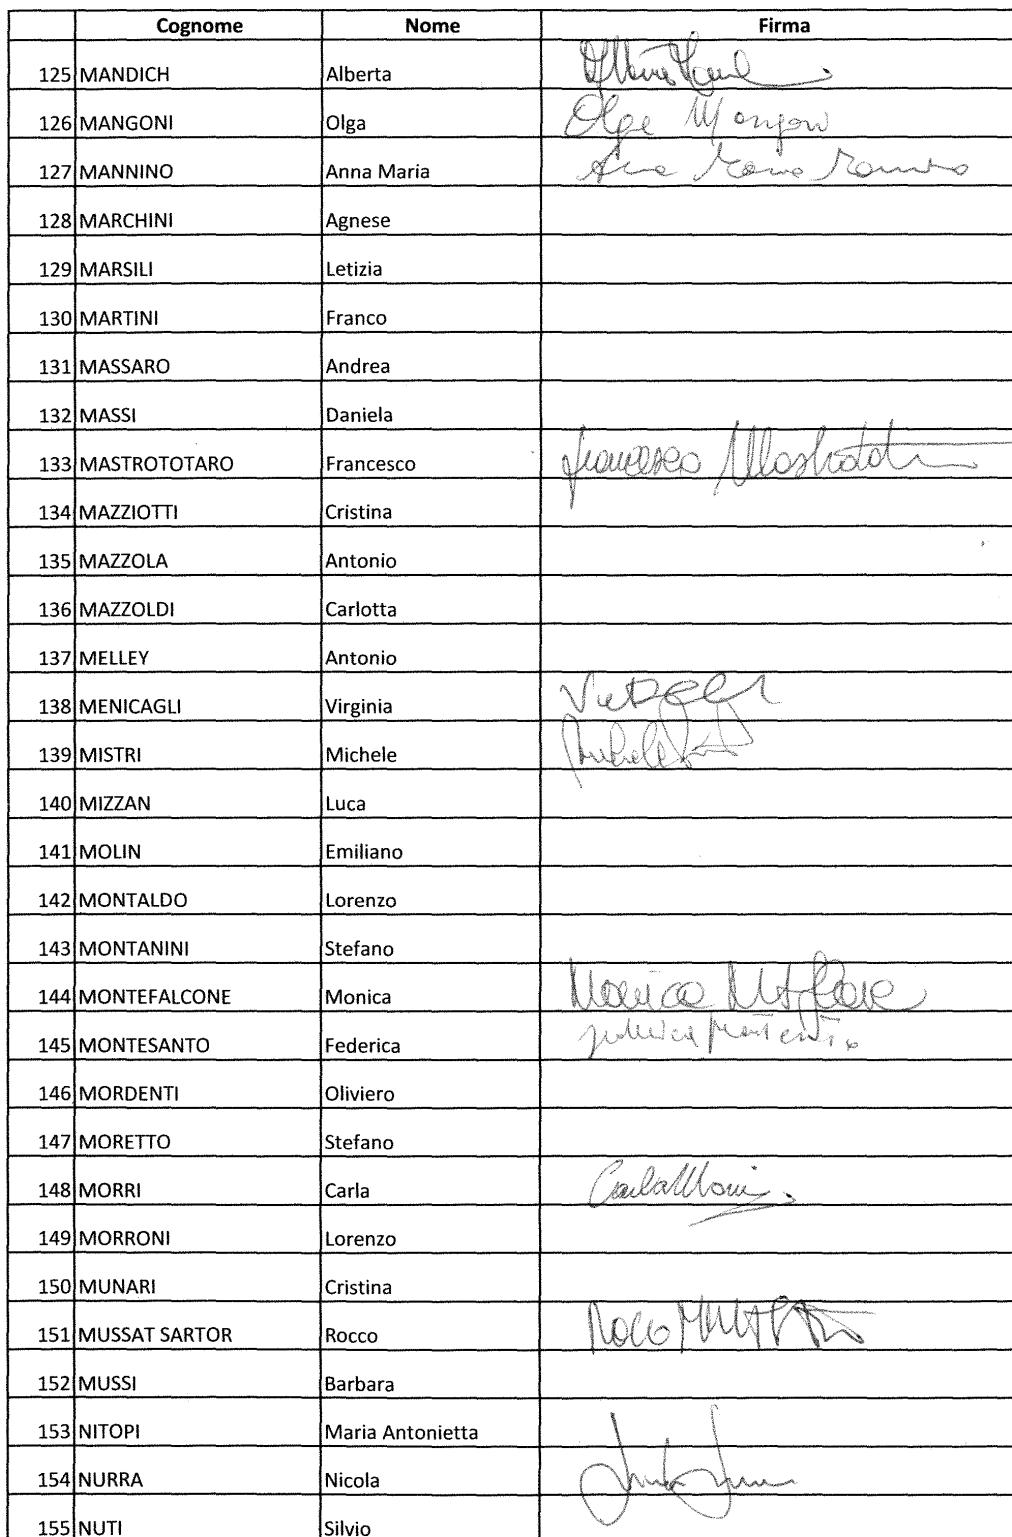 Cognome Nome Firma
125 MANDICH Alberta
126 MANGONI Olga Olga Mangoni
127 MANNINO Anna Maria Anna Maria Mannino
128 MARCHINI Agnese
129 MARSILI Letizia
130 MARTINI Franco
131 MASSARO Andrea
132 MASSI Daniela
133 MASTROTOTARO Francesco Francesco
134 MAZZIOTTI Cristina
135 MAZZOLA Antonio
136 MAZZOLDI Carlotta
137 MELLEY Antonio
138 MENICAGLI Virginia
139 MISTRI Michele Michele
140 MIZZAN Luca
141 MOLIN Emiliano
142 MONTALDO Lorenzo
143 MONTANINI Stefano
144 MONTEFALCONE Monica Monica
145 MONTESANTO Federica
146 MORDENTI Oliviero
147 MORETTO Stefano
148 MORRI Carla Carla Morri
149 MORRONI Lorenzo
150 MUNARI Cristina
151 MUSSAT SARTOR Rocco Rocco
152 MUSSI Barbara
153 NITOPI Maria Antonietta
154 NURRA Nicola
155 NUTI Silvio